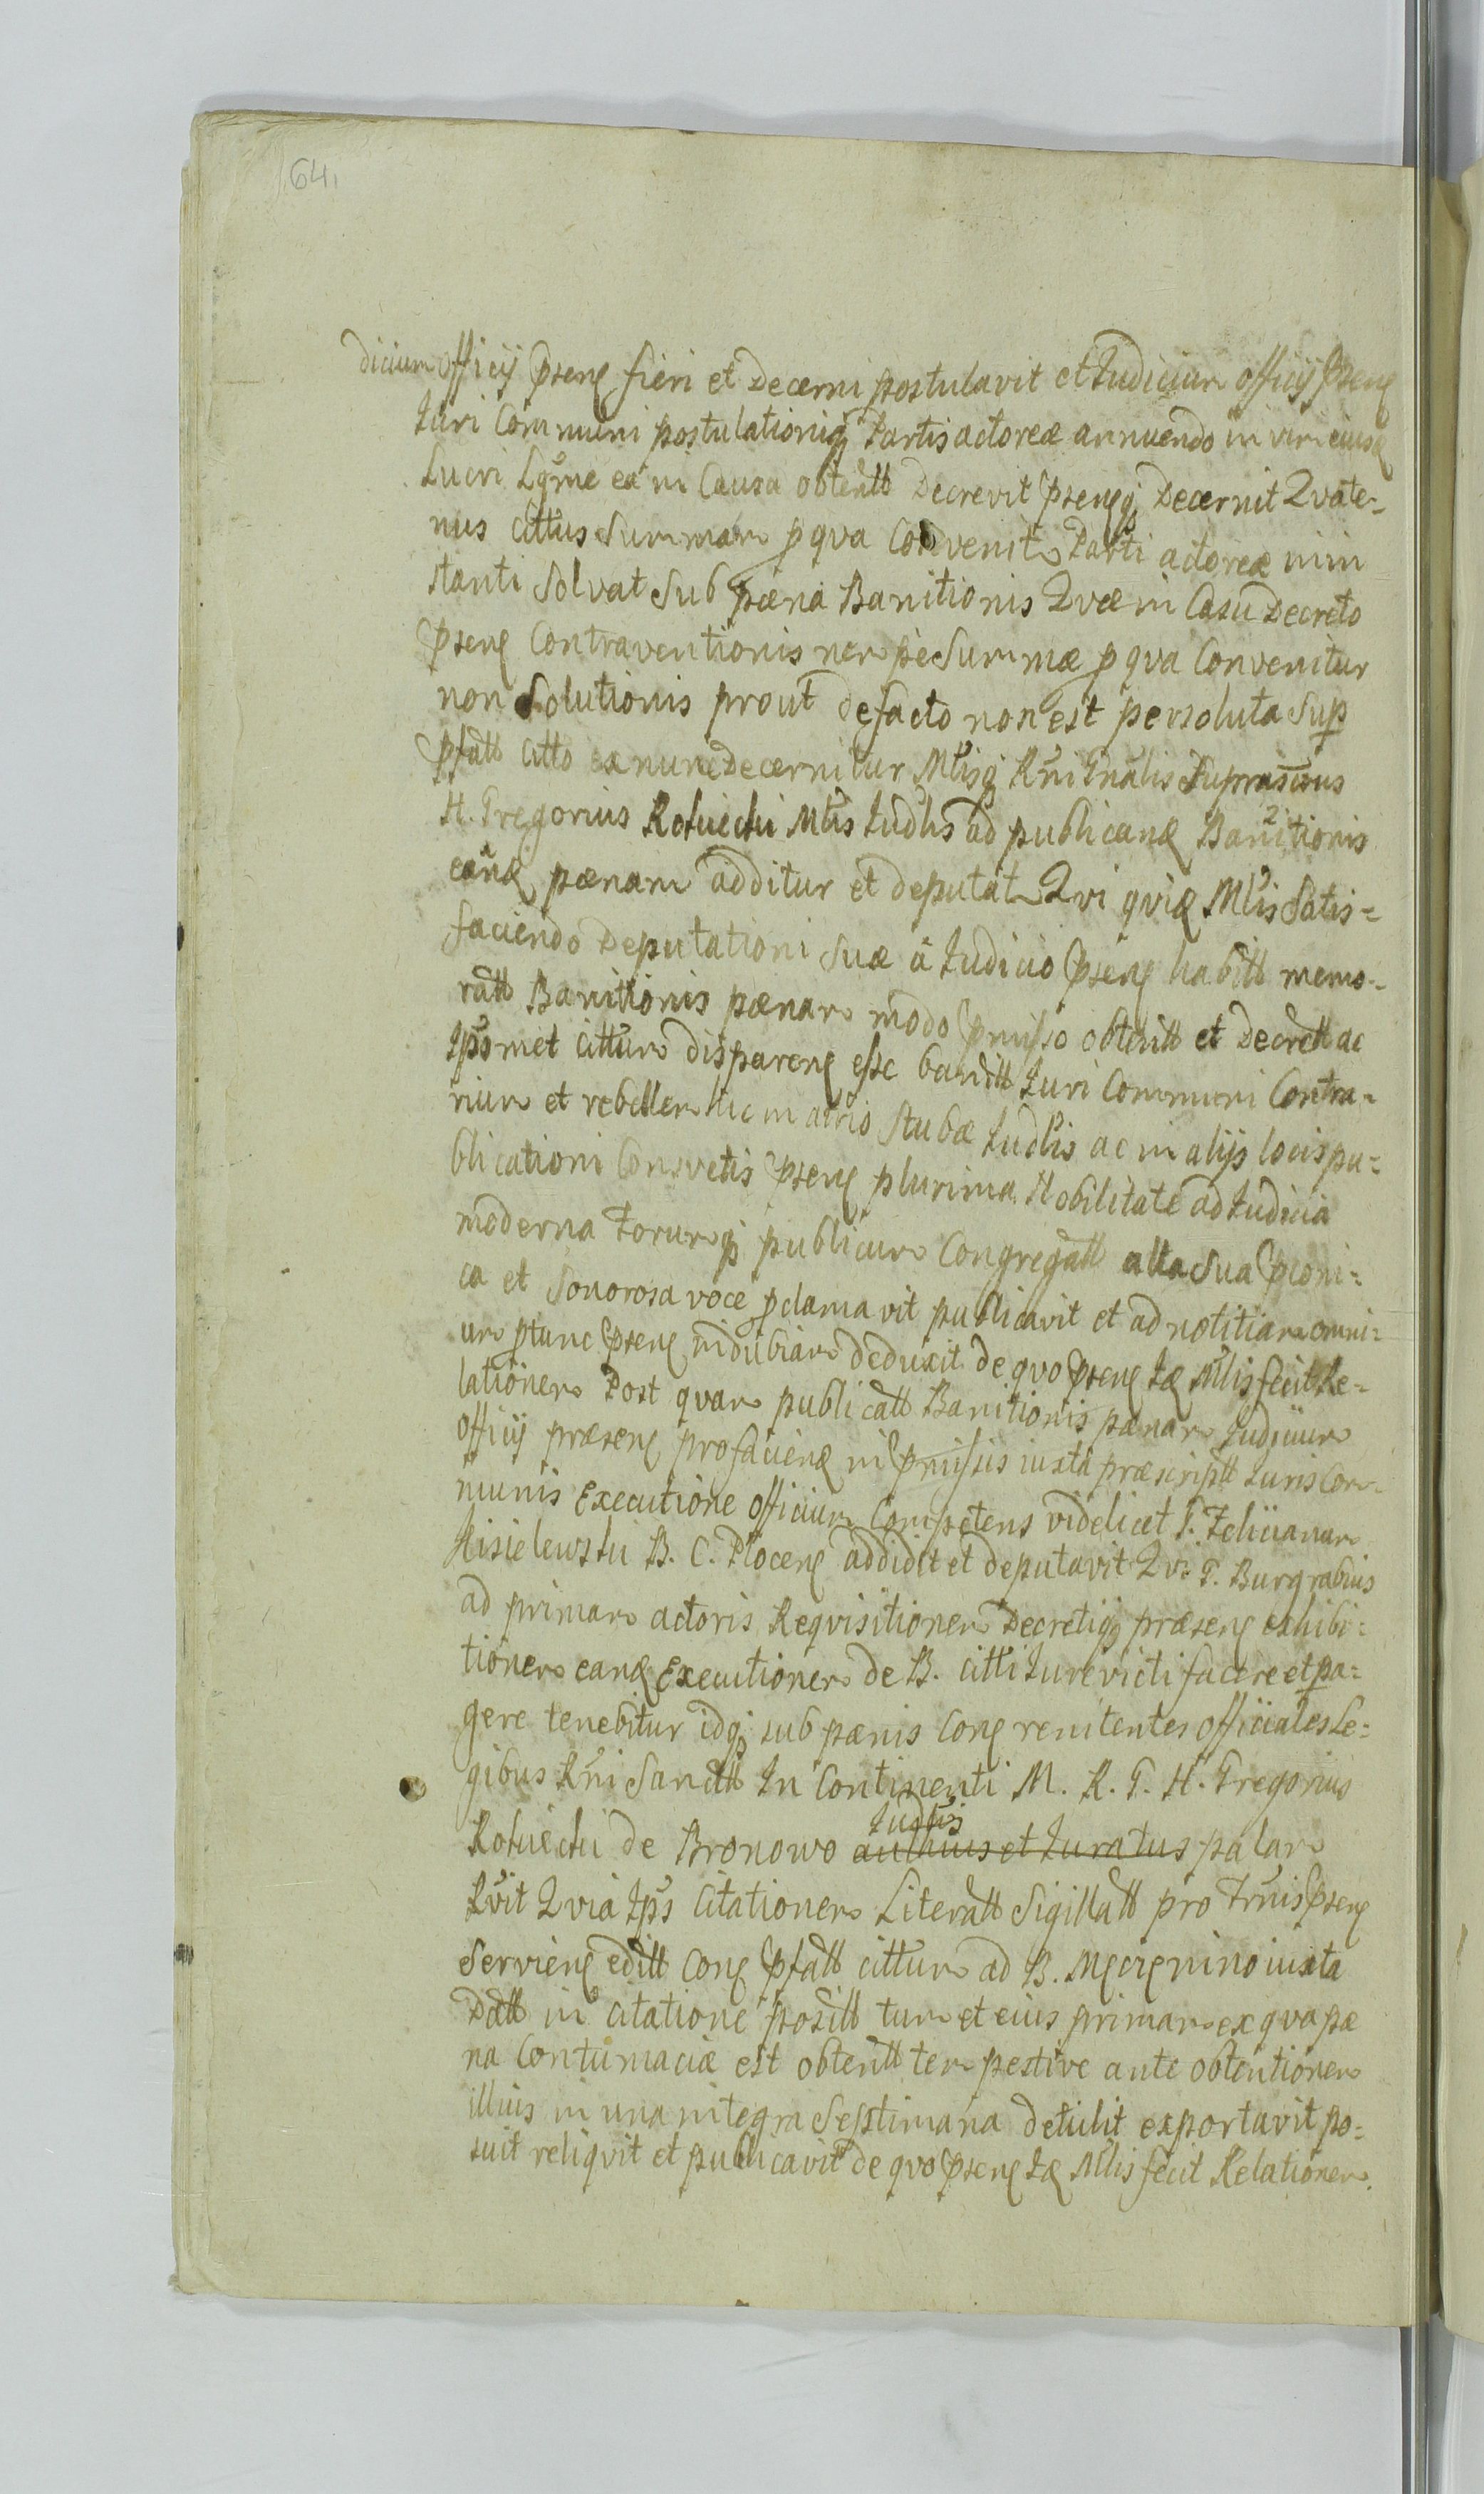 64.
dicium officij pseng fieri et Decerni postulavit et Iudicium officij pseng
Iuri Communi postulationiq Partis actoreæ annuendo in vim eiusd
Lucri Lgme ea in Causa obtentt Decrevit psengq Decernit Qvate-
nus Cittus Summam p qva Convenit Parti actoreæ min
stanti Solvat Sub pæna Banitionis Qvæ in Casu Decreto
pseng Contraventionis nempe Summæ p qva Convenitur
non Solutionis prout defacto non est persoluta Sup
pfatt citto ex nunc Decernitur Mlisq Rni Gnalis Suprascrus
H. Gregorius Kotwicki Mlis Iudlis ad publicand Banitionis
eand pænam additur et deputat Qvi qvid Mlis Satis=
faciendo Deputationi Suæ a Iudicio pseng habitt memo-
ratt Banitionis pænam modo pmisso obtentt et Decrett ac
Ipsmet Cittum dispareng esse banitt Iuri Communi Contra-
rium et rebellem hic in atrio Stubæ Iudlis ac in alijs locis pu=
blicationi Consvetis pseng plurima Nobilitate ad Iudicia
moderna Forumq publicum Congregatt alta Sua pconi=
ca et Sonorosa voce pclamavit publicavit et ad notitiam omni=
um ptunc pseng indubiam deduxit de qvo pseng Id Mlis fecit Re-
lationem Post qvam publicatt Banitionis pænam Iudicium
officij præseng pro faciend in pmissis iuxta præscriptt Iuris Com-
munis Executione officium Competens videlicet G. Felicianum
Kisielewski B. C. Ploceng addidit et deputavit Qvi G. Burgrabius
ad primam actoris Reqvisitionem Decretiqq præseng exhibi=
tionem eand Executionem de B. citti Iure victi facere et pa=
gere tenebitur idqq sub pænis Cong renitentes officiales Le=
gibus Rni Sanctt In Continenti M. R. G. H. Gregorius
Kotwicki de Bronowo aulicus et Iuratus Iudlis palam
Rvit Qvia Ips Citationem Literatt Sigillatt pro Trnis pseng
Servieng editt Cong pfatt cittum ad B. Męcięnino iuxta
Datt in citatione positt tum et eius primam ex qva pæ
na Contumaciæ est obtentt tempestive ante obtentionem
illius in una integra Septimana detulit exportavit po=
suit reliqvit et publicavit de qvo pseng Id Mlis fecit Relationem.